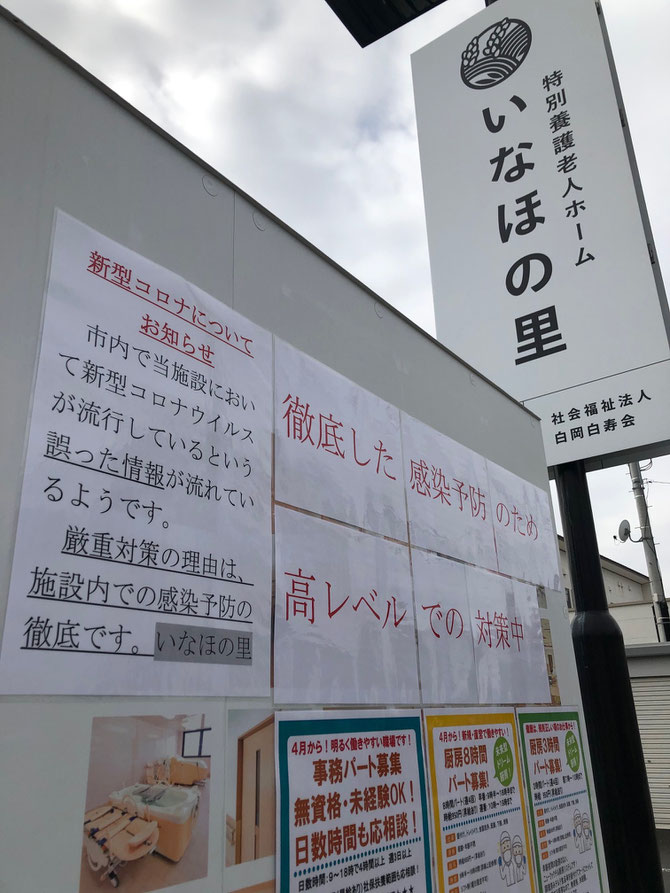 特別養護老人ホーム
いなほの里
社会福祉法人
白岡白寿会
新型コロナについて
お知らせ
市内で当施設におい
て新型コロナウイルス
が流行しているという
誤った情報が流れてい
るようです。
厳重対策の理由は、
施設内での感染予防の
徹底です。いなほの里
徹底した感染予防のため
高レベルでの対策中
4月から!明るく働きやすい職場です!
事務パート募集
無資格・未経験OK!
日数時間も応相談!
日数時間:9〜18時で4時間以上 週3日以上
4月から!新規・直営で働きやすい!
厨房8時間
パート募集!
厨房3時間
パート募集!